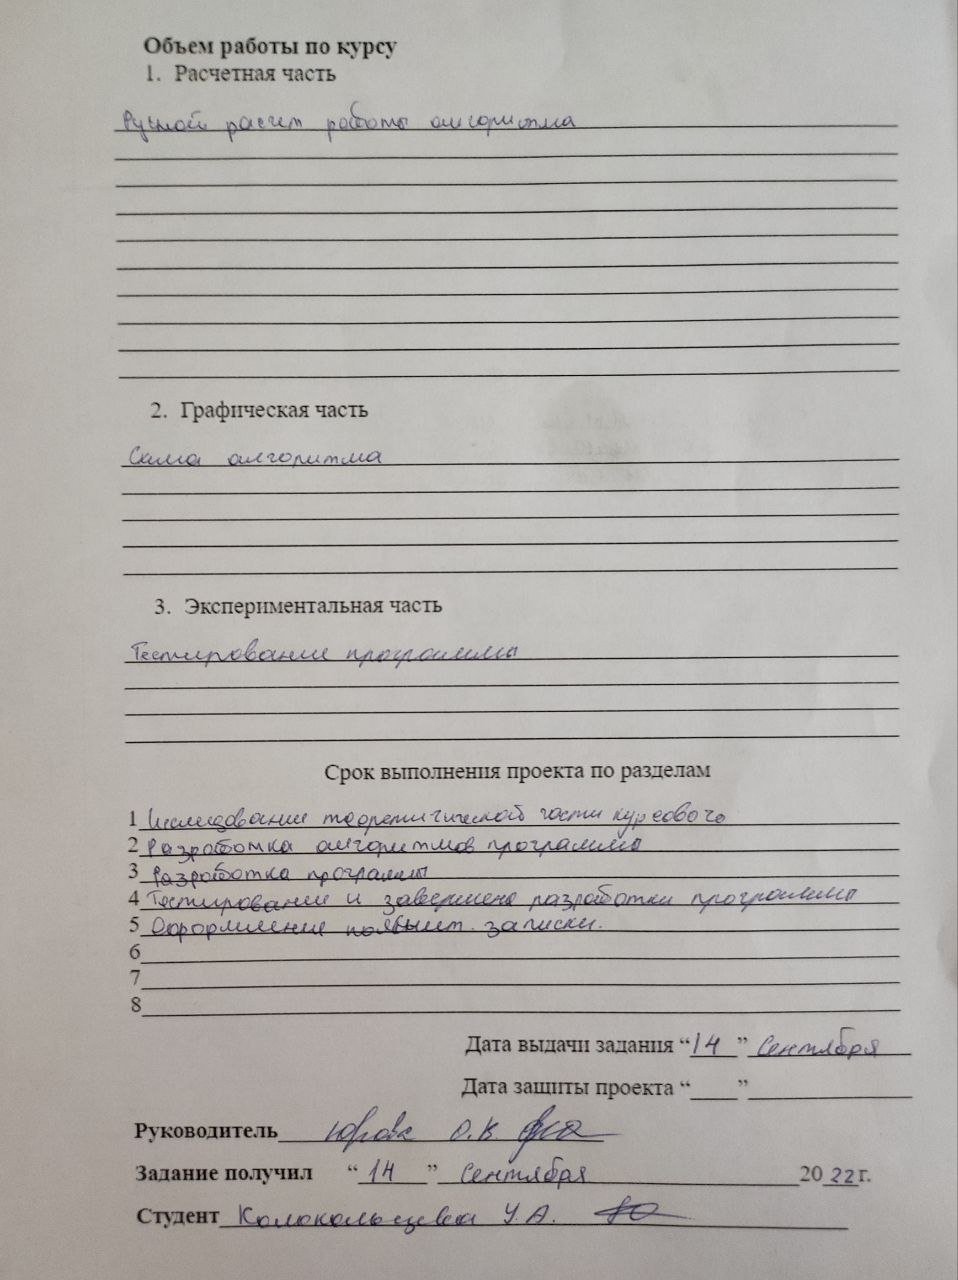 Объем работы по курсу
1. Расчетная часть
Ручной расчет работы алгоритма
2. Графическая часть
Схема алгоритма
3. Экспериментальная часть
Тестирование программы
Срок выполнения проекта по разделам
1 Исследование теоретической части курсового
2 Разработка алгоритмов программы
3 Разработка программы
4 Тестирование и завершение разработки программы
5 Оформление записки.
6
7
8
Дата выдачи задания “14” Сентября
Дата защиты проекта “ ”
Руководитель Юрова О.В.
Задание получил “14” Сентября 2022г.
Студент Колокольцева У.А.